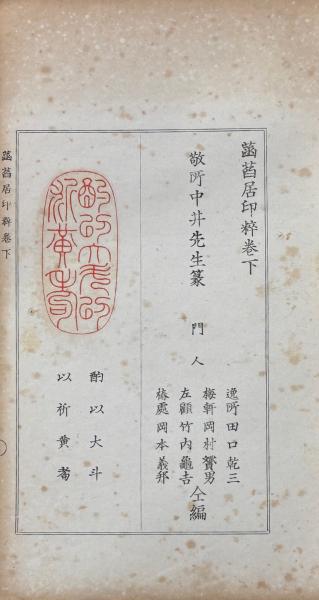 菡萏居印粹卷下
敬所中井先生篆
門人
逸所田口乾三
梅軒岡村贇男
左顧竹内龜吉
椿處岡本義邦
仝編
酌以大斗
以祈黄耈
酌以大斗
以祈黃耈
菡萏居印粹卷下